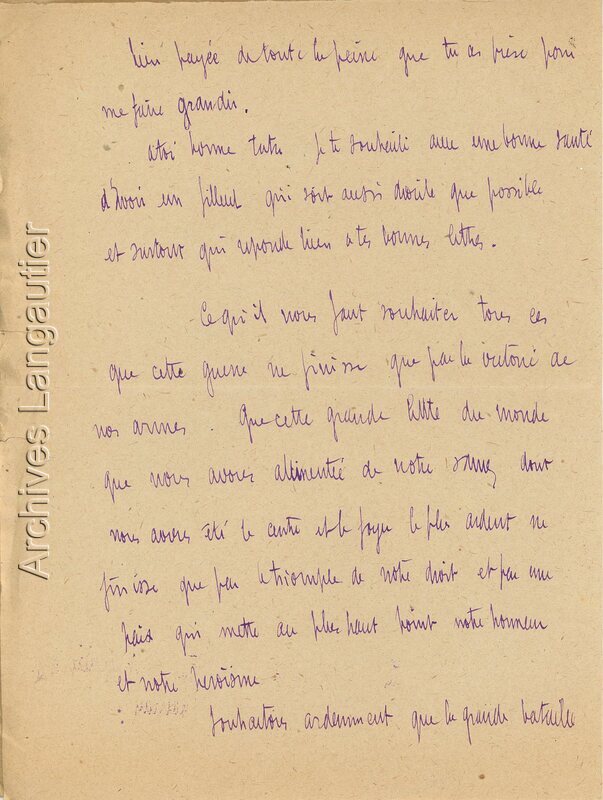 bien payée de toute la peine que tu as prise pour
me faire grandir.
A toi bonne tata je te souhaite avec une bonne santé
d'avoir un filleul qui soit aussi docile que possible
et surtout qui reponde bien a tes bonnes lettres.
Ce qu'il nous faut souhaiter tous est
que cette guerre ne finisse que par la victoire de
nos armes. Que cette grande lutte du monde
que nous avons alimentée de notre sang dont
nous avons été le centre et le foyer le plus ardent ne
finisse que par le triomphe de notre droit et par une
paix qui mette au plus haut point notre honneur
et notre heroïsme
Souhaitons ardemment que la grande bataille
Archives Langautier